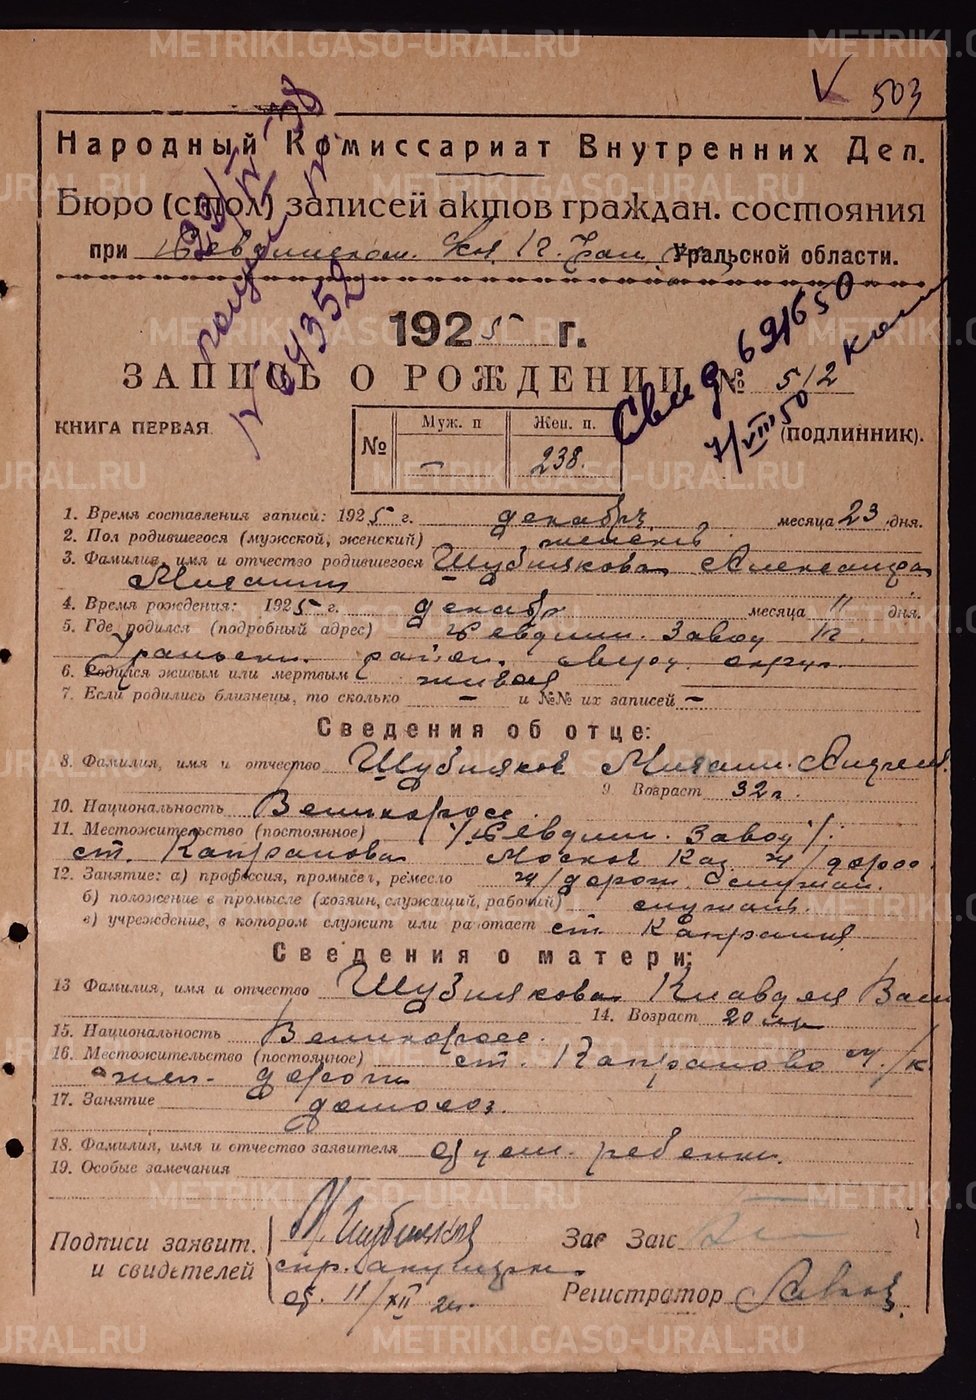 503
Народный Комиссариат Внутренних Дел.
Бюро (стол) записей актов граждан. состояния
при Уральской области.
1925 г.
ЗАПИСЬ О РОЖДЕНИИ № 512
КНИГА ПЕРВАЯ.
(ПОДЛИННИК).
№ Муж. п Жен. п.
— 238.
Свид 691650
7/VIII 50
№ 64352
1. Время составления записи: 1925 г. декабрь месяца 23 дня.
2. Пол родившегося (мужской, женский) женский
3. Фамилия, имя и отчество родившегося Шубнякова Александра
4. Время рождения: 1925 г. декабрь месяца 11 дня.
5. Где родился (подробный адрес) Ревдин. Завод
Уральск. район. сверд. округ
6. Родился живым или мертвым живая
7. Если родились близнецы, то сколько — и №№ их записей —
Сведения об отце:
8. Фамилия, имя и отчество Шубняков Михаил Андреев.
9. Возраст 32 г.
10. Национальность Великоросс.
11. Местожительство (постоянное) Ревдин. Завод
ст. Капралова Москов Каз ж/дорос
12. Занятие: а) профессия, промысел, ремесло ж/дорож. Служащ.
б) положение в промысле (хозяин, служащий, рабочий) служащ.
в) учреждение, в котором служит или работает ст.
Сведения о матери:
13 Фамилия, имя и отчество Шубнякова Клавдия Васил
14. Возраст 20 лет
15. Национальность Великоросс.
16. Местожительство (постоянное) ст. Капралово М/К
жел. дороги
17. Занятие домохоз.
18. Фамилия, имя и отчество заявителя отец ребенка.
19. Особые замечания
Подписи заявит. М. Шубняков Зав Загс
и свидетелей спр. акушерки Регистратор
от 11/XII
METRIKI.GASO-URAL.RU